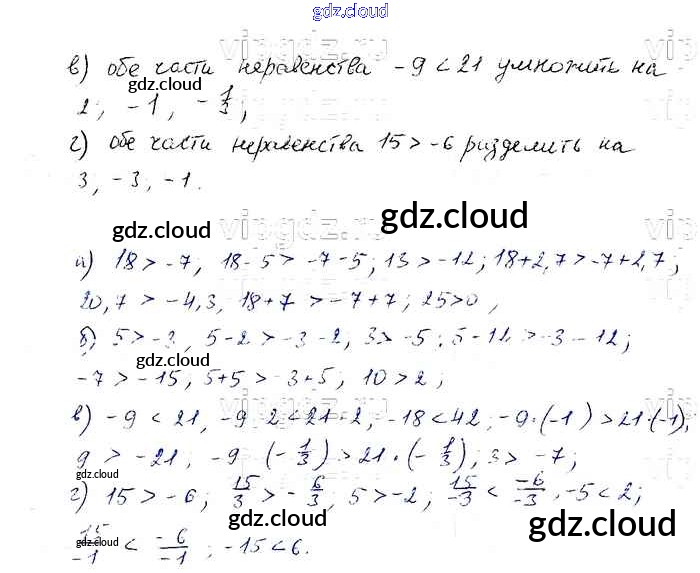 gdz.cloud
в) обе части неравенства -9 < 21 умножить на
gdz.cloud
2, -1, -1/3;
г) обе части неравенства 15 > -6 разделить на
3, -3, -1.
gdz.cloud
gdz.cloud
а) 18 > -7; 18-5 > -7-5; 13 > -12; 18+2,7 > -7+2,7;
20,7 > -4,3, 18+7 > -7+7; 25>0,
gdz.cloud
б) 5 > -3, 5-2 > -3-2, 3 > -5; 5-12 > -3-12;
gdz.cloud
-7 > -15, 5+5 > -3+5, 10 > 2;
в) -9 < 21, -9·2 < 21·2, -18 < 42, -9·(-1) > 21·(-1),
9 > -21; -9·(-1/3) > 21·(-1/3); 3 > -7;
gdz.cloud
г) 15 > -6; 15/3 > -6/3, 5 > -2; 15/-3 < -6/-3, -5 < 2;
gdz.cloud
gdz.cloud
15/-1 < -6/-1; -15 < 6.